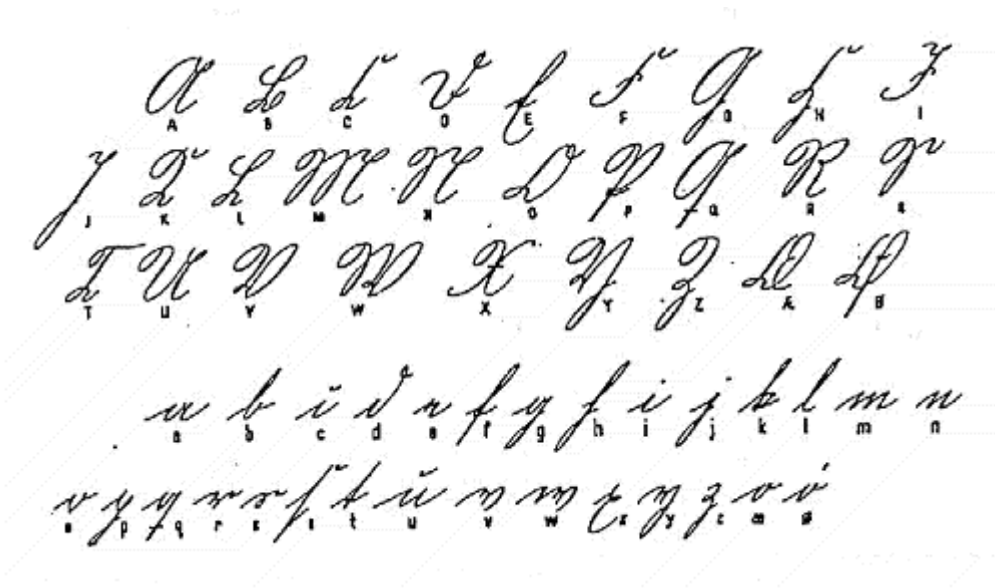 A B C D E F G H I
J K L M N O P Q R S
T U V W X Y Z Æ Ø
a b c d e f g h i j k l m n
o p q r s s t u v w x y z æ ø